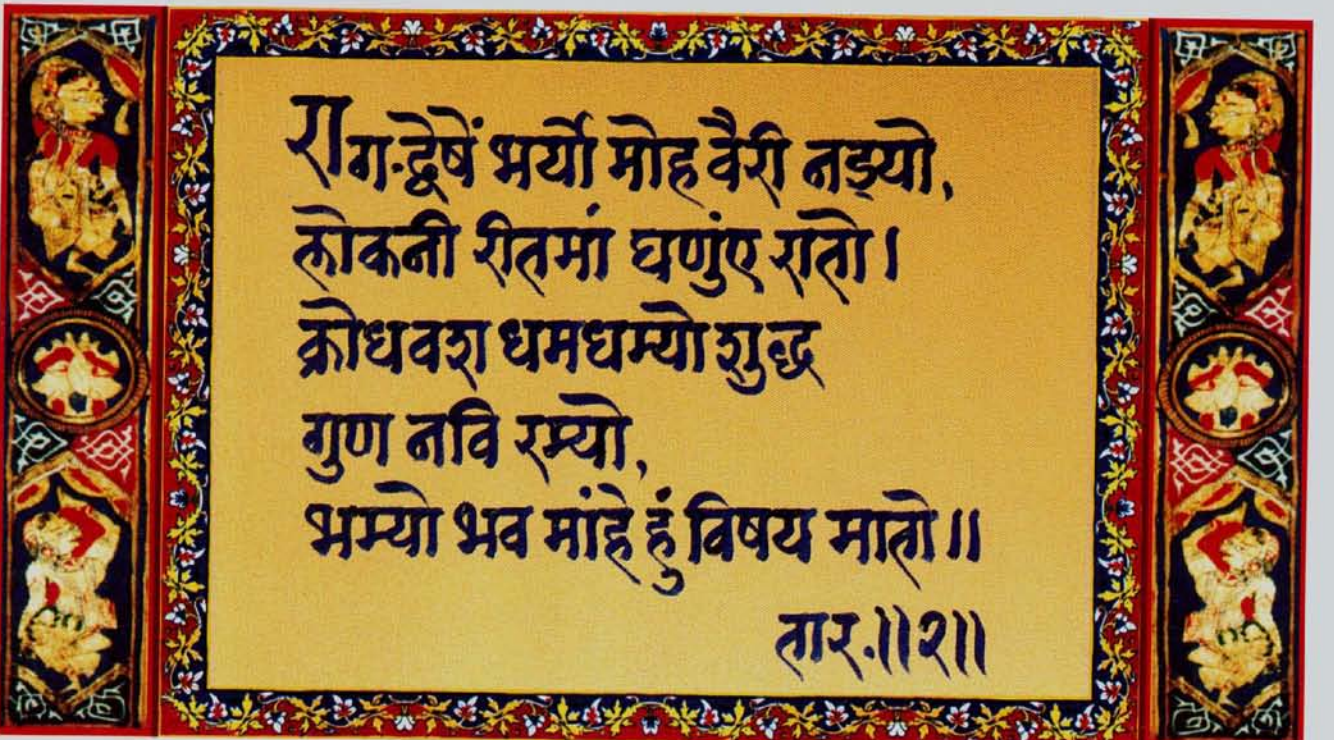 राग-द्वेषें भर्यो मोह वैरी नड्यो,
लोकनी रीतमां घणुंए रातो।
क्रोधवश धमधम्यो शुद्ध
गुण नवि रम्यो,
भम्यो भव मांहे हुं विषय मातो॥
तार.॥२॥